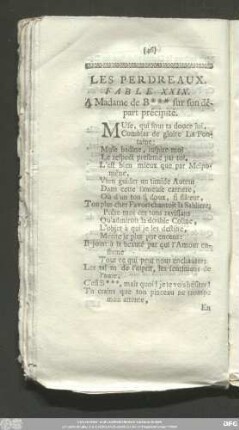 (46)
LES PERDREAUX.
FABLE XXIX.
A Madame de B*** sur son dé-
part précipité.
MUse, qui sous ta douce loi,
Comblas de gloire La Fon-
taine;
Muse badine, inspire moi
Le respect present par toi,
L'est bien mieux que par Melpo-
mène,
Viens guider un timide Auteur
Dans cette carriere,
Où d'un ton si doux, si
Ton plus cher Favori chantoit la
Prête moi ces sons
Qu'admiroit la double Coline,
L'objet à qui je les destine,
Mérite plus encore:
Il joint à la beauté par qui l'Amour en-
Tout ce qui peut nous enchanter;
Les de l'esprit, les sentimens de
l'ame;
C'est B***, mais quoi! je te vois hésiter!
Tu crains que ton pinceau ne
mon attente,
En